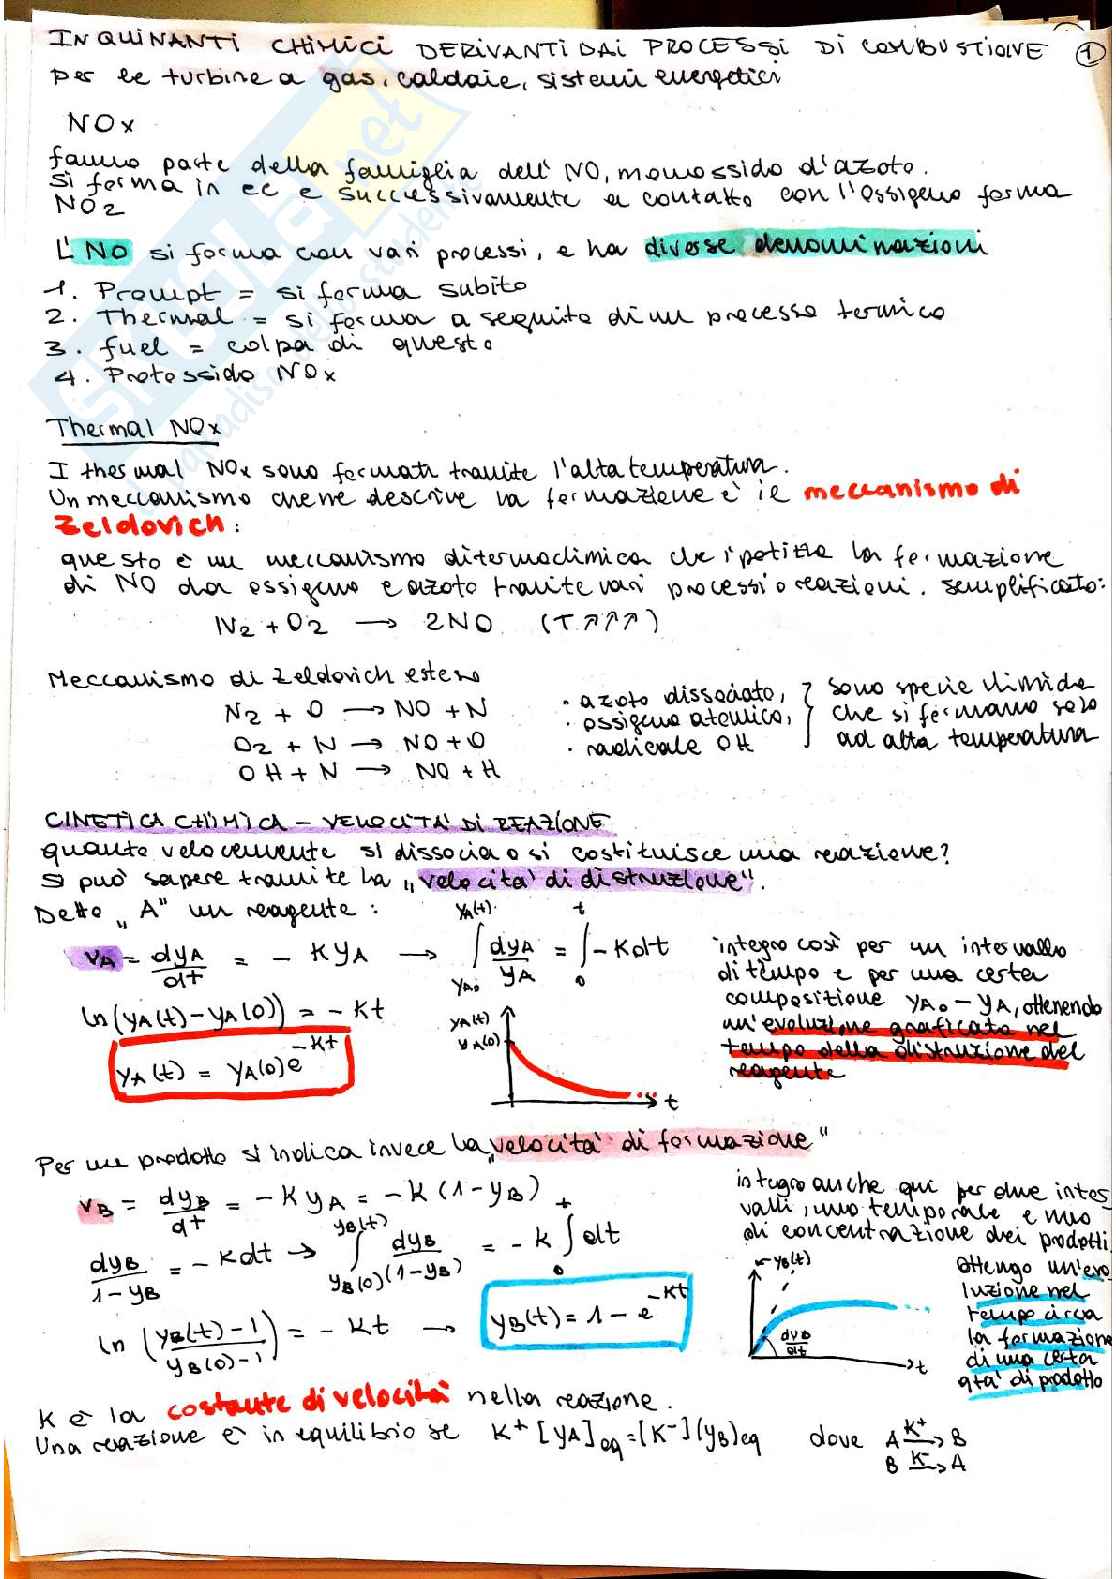 INQUINANTI CHIMICI DERIVANTI DAI PROCESSI DI COMBUSTIONE 1
per le turbine a gas, caldaie, sistemi energetici
NOx
fanno parte della famiglia dell' NO, monossido d'azoto.
Si forma in cc e successivamente a contatto con l'ossigeno forma
NO2
L'NO si forma con vari processi, e ha diverse denominazioni
1. Prompt = si forma subito
2. Thermal = si forma a seguito di un processo termico
3. fuel = colpa di questo
4. Protossido NOx
Thermal NOx
I thermal NOx sono formati tramite l'alta temperatura.
Un meccanismo che ne descrive la formazione è il meccanismo di
Zeldovich:
questo è un meccanismo di termochimica che ipotizza la formazione
di NO da ossigeno e azoto tramite vari processi o reazioni. semplificato:
N2 + O2 → 2NO (T↗↗↗)
Meccanismo di Zeldovich esteso
N2 + O → NO + N
O2 + N → NO + O
OH + N → NO + H
· azoto dissociato,
· ossigeno atomico,
· radicale OH
} sono specie chimiche
che si formano solo
ad alta temperatura
CINETICA CHIMICA - VELOCITÀ DI REAZIONE
quanto velocemente si dissocia o si costituisce una reazione?
Si può sapere tramite la "velocità di distruzione".
Detto "A" un reagente:
vA = dyA/dt = - K yA → ∫_{yA0}^{yA(t)} dyA/yA = ∫_0^t -Kdt
ln(yA(t)-yA(0)) = - Kt
yA(t) = yA(0)e^{-Kt}
yA(t)
yA(0)
t
integro così per un intervallo
di tempo e per una certa
composizione yA0 - yA, ottenendo
un'evoluzione graficata nel
tempo della distruzione del
reagente
Per un prodotto si indica invece la "velocità di formazione"
vB = dyB/dt = - K yA = - K (1 - yB)
dyB/1-yB = - Kdt → ∫_{yB(0)}^{yB(t)} dyB/(1-yB) = - K ∫_0^t dt
ln (yB(t)-1/yB(0)-1) = - Kt → yB(t) = 1 - e^{-Kt}
integro anche qui per due inter
valli, uno temporale e uno
di concentrazione dei prodotti
yB(t)
dyB/dt
t
ottengo un'evo
luzione nel
tempo circa
la formazione
di una certa
qtà di prodotto
K è la costante di velocità nella reazione.
Una reazione è in equilibrio se K+ [yA]eq = [K-](yB)eq dove A K+→ B
B K-→ A